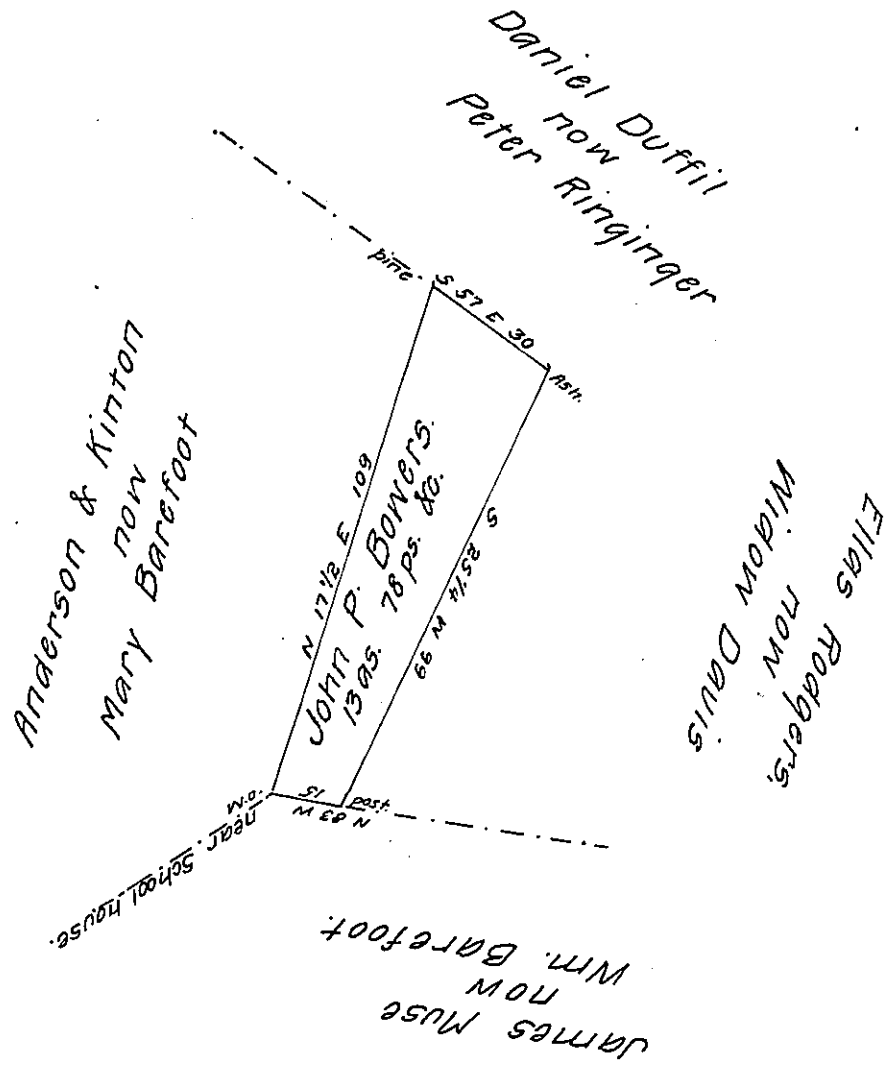 Daniel Duffil
now
Peter Ringinger
pine.
S 57 E 30
Ash.
Anderson & Kinton
now
Mary Barefoot
N 17 1/2 E 109
John P. Bowers.
13 as. 78 ps. &c.
S 25 1/4 W 99
Elias Rodgers,
now
Widow Davis
W.O.
N 83 W 15
post.
near School house.
James Muse
now
Wm. Barefoot.